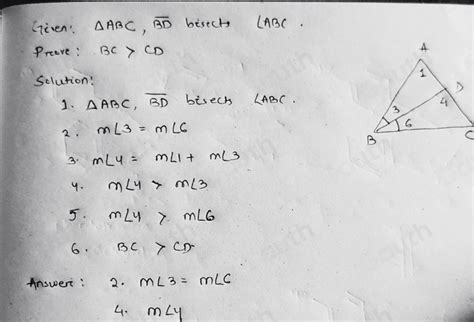 Given: △ABC, BD bisects ∠ABC.
Prove: BC > CD
Solution:
1. △ABC, BD bisects ∠ABC.
2. m∠3 = m∠6
3. m∠4 = m∠1 + m∠3
4. m∠4 > m∠3
5. m∠4 > m∠6
6. BC > CD
Answer: 2. m∠3 = m∠6
4. m∠4
A
1
D
4
3
6
B
C